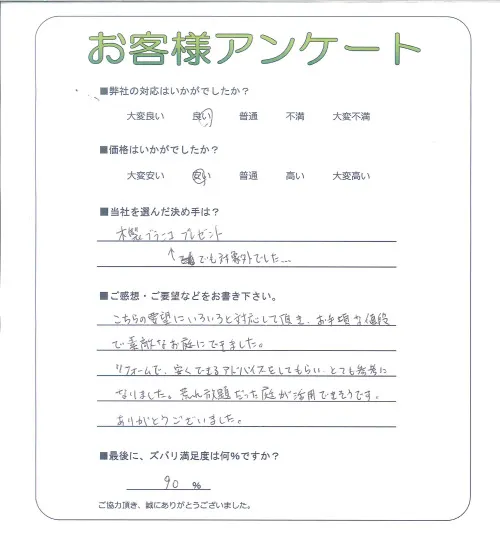 お客様アンケート
■弊社の対応はいかがでしたか？
大変良い 良い 普通 不満 大変不満
■価格はいかがでしたか？
大変安い 安い 普通 高い 大変高い
■当社を選んだ決め手は？
木製ブランコ プレゼント
↑ でも対象外でした…
■ご感想・ご要望などをお書き下さい。
こちらの要望にいろいろと対応して頂き、お手頃な値段
で素敵なお庭にできました。
リフォームで、安くできるアドバイスをしてもらい、とても参考に
なりました。荒れ放題だった庭が活用できそうです。
ありがとうございました。
■最後に、ズバリ満足度は何％ですか？
90 %
ご協力頂き、誠にありがとうございました。